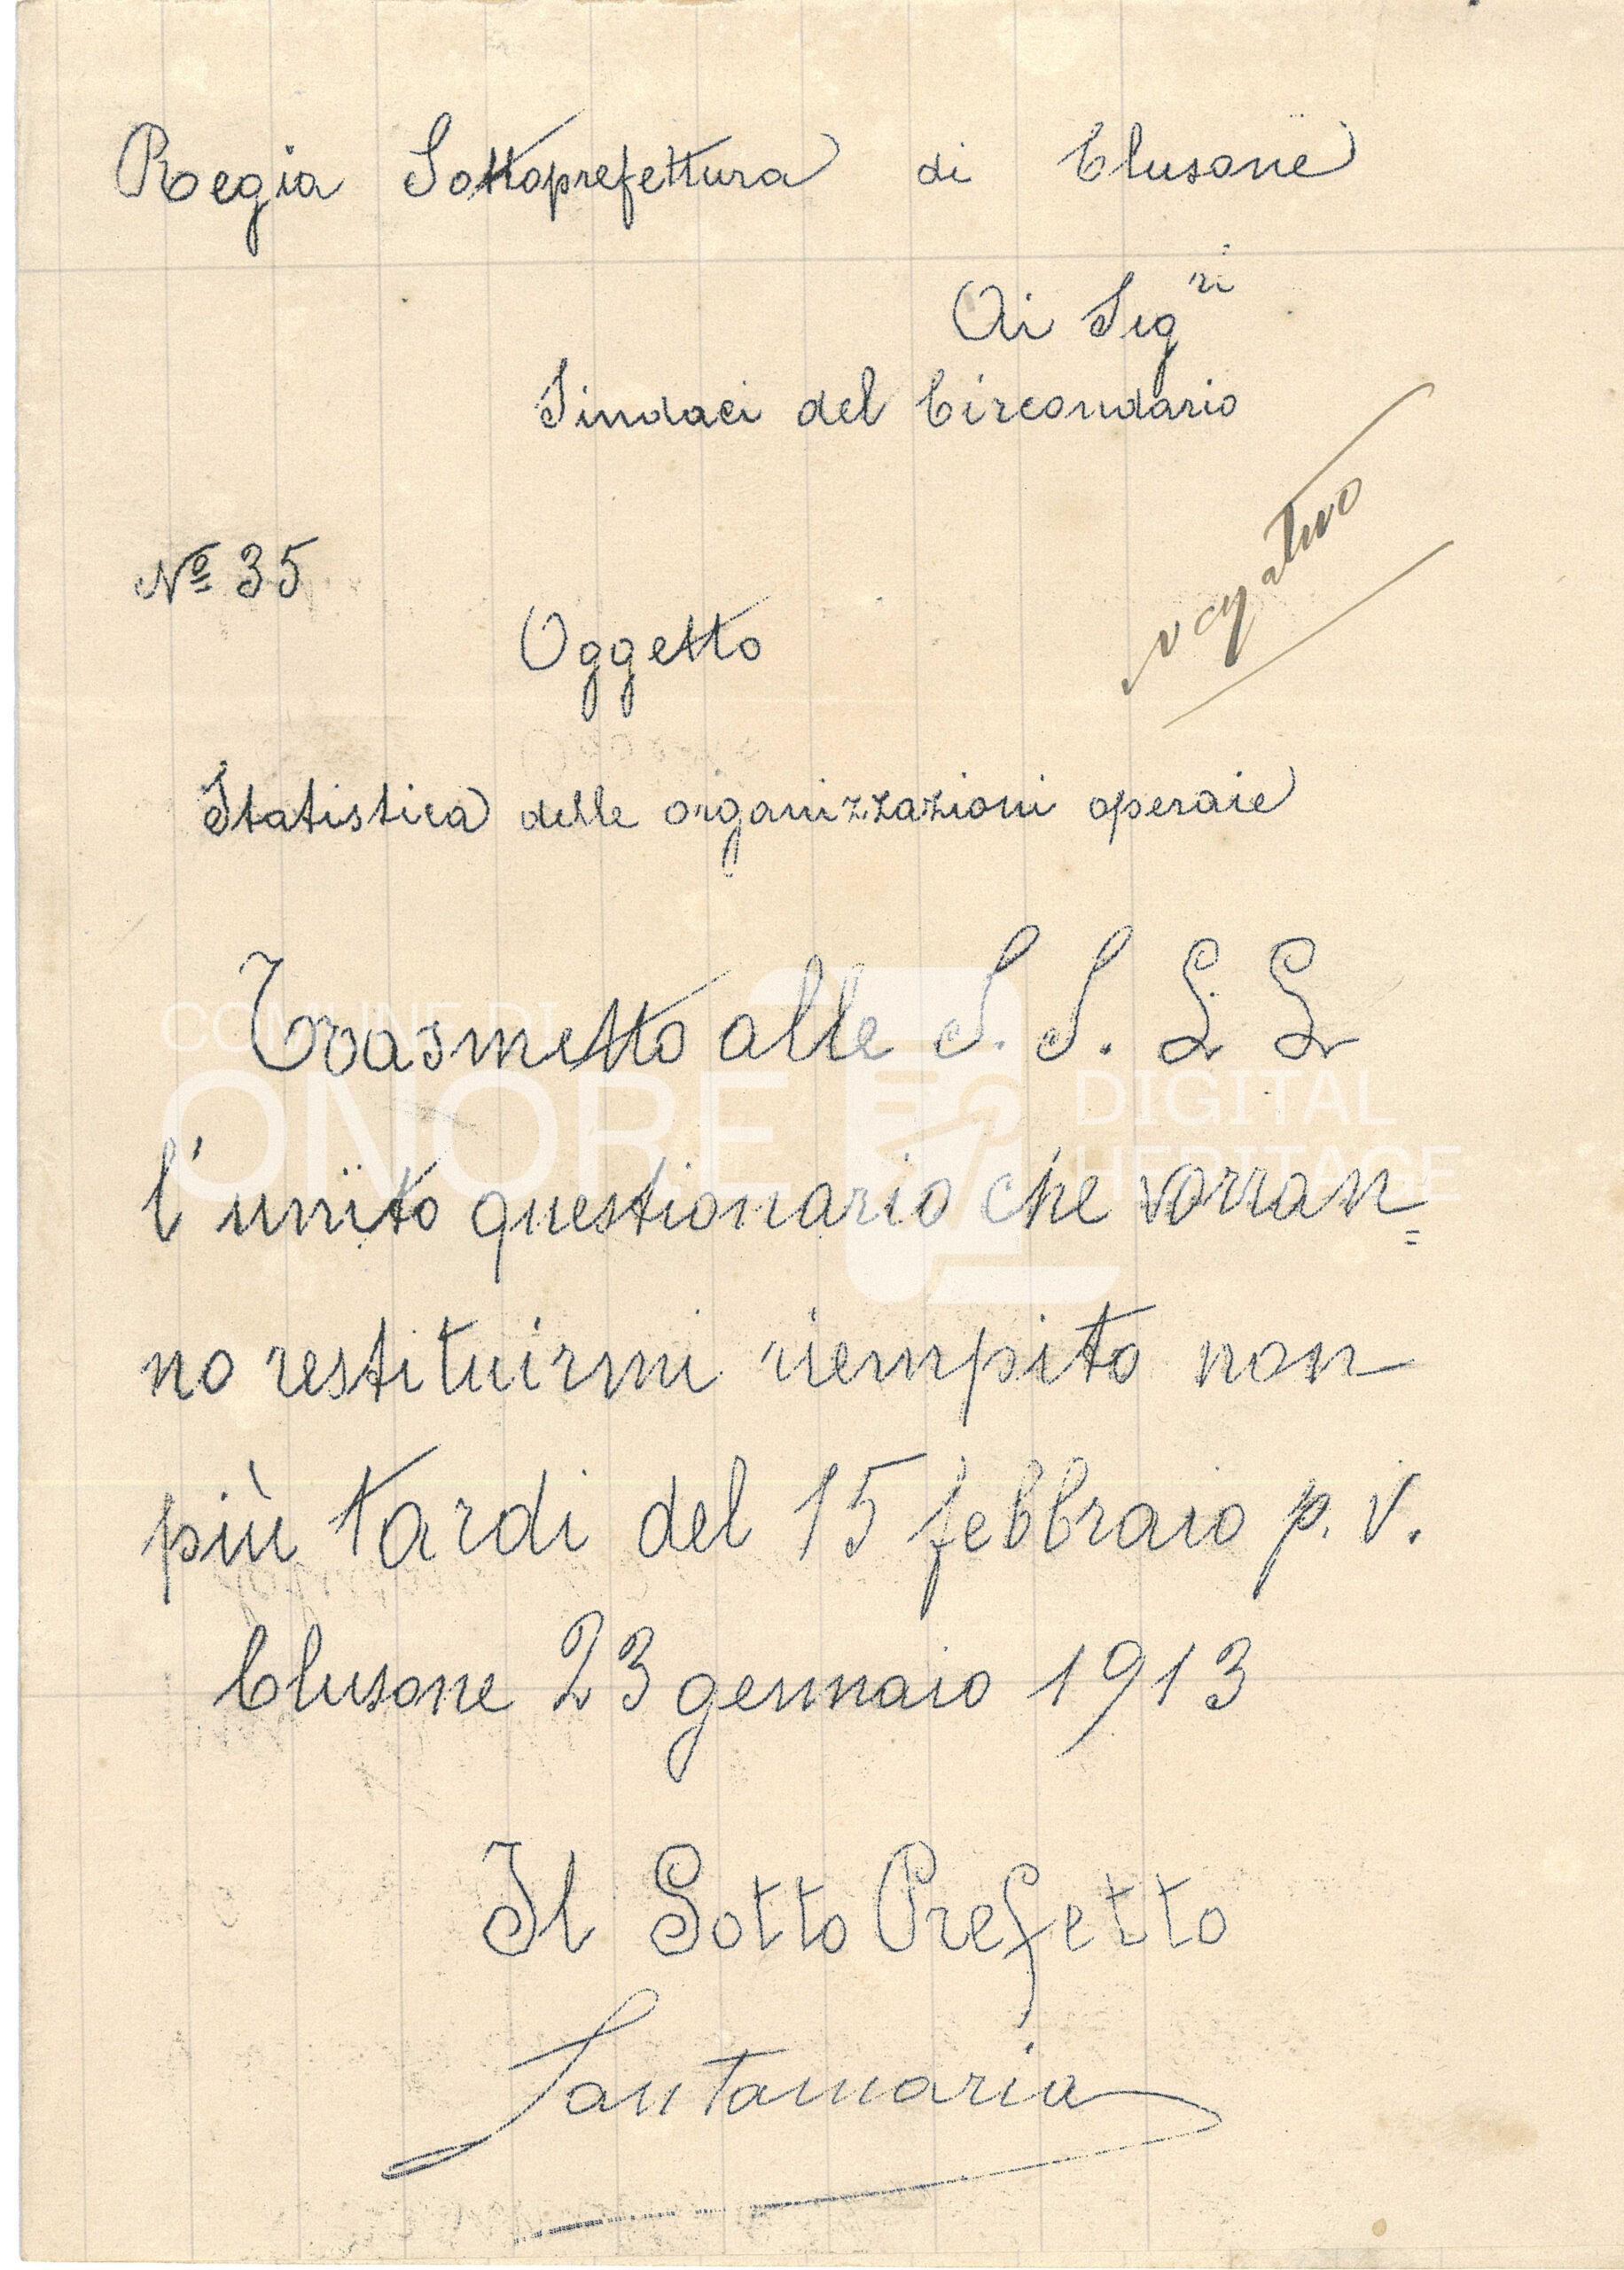 Regia Sottoprefettura di Clusone
Ai Sig.ri
Sindaci del Circondario
Nº 35
negativo
Oggetto
Statistica delle organizzazioni operaie
Trasmetto alle S. S. L L
l'unito questionario che vorran=
no restituirmi riempito non
più tardi del 15 febbraio p. v.
Clusone 23 gennaio 1913
Il Sotto Prefetto
Santamaria
COMUNE DI
ONORE
DIGITAL
HERITAGE